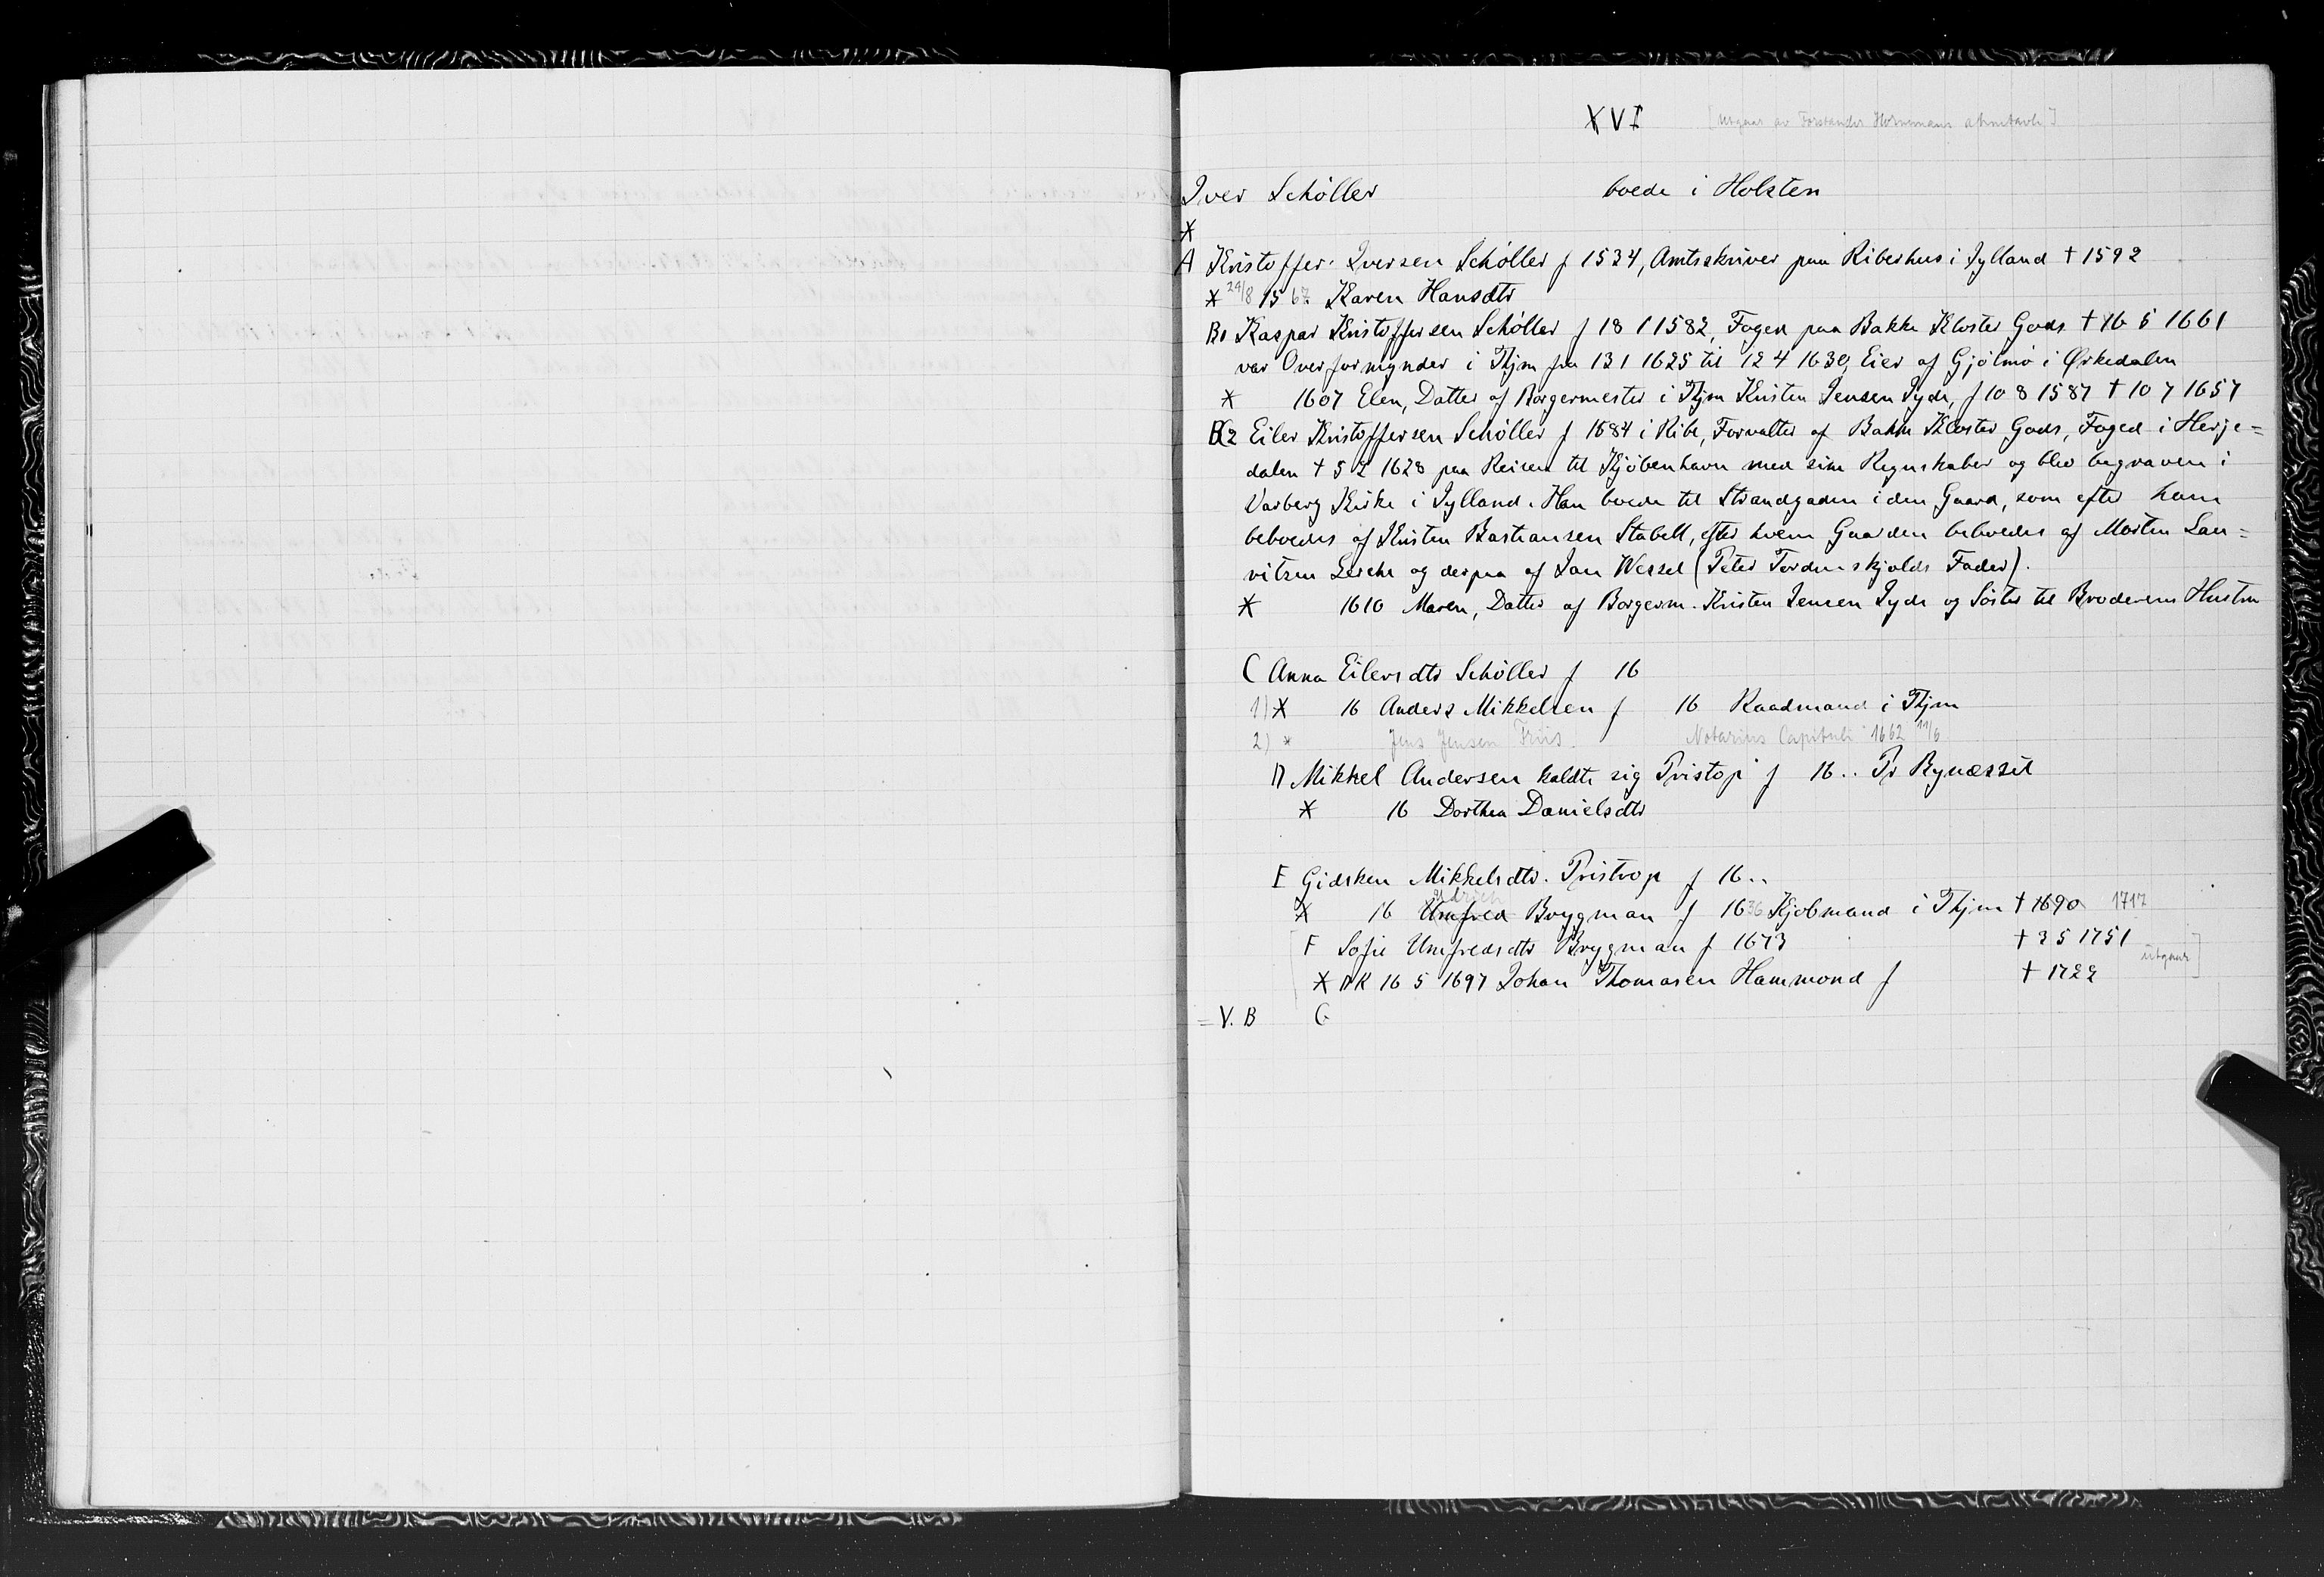 XVI [Utgaar av Forstander Hornemans ahnetavle]
Iver Schøller boede i Holsten
*
A Kristoffer Iversen Schøller f 1534, Amtsskriver paa Riberhus i Jylland † 1592
* 24/8 1567 Karen Hansdtr
B1 Kaspar Kristoffersen Schøller f 18 1 1582, Foged paa Bakke Kloster Gods † 16 5 1661
var Overformynder i Thjm fra 13 1 1625 til 12 4 1630, Eier af Gjølmø i Ørkedalen
* 1607 Elen, Datter af Borgermester i Thjm Kristen Jensen Jyde, f 10 8 1587 † 10 7 1657
B2 Eiler Kristoffersen Schøller f 1584 i Ribe, Forvalter af Bakke Kloster Gods, Foged i Herje=
dalen † 5 2 1628 paa Reisen til Kjøbenhavn med sine Regnskaber og blev begraven i
Varberg Kirke i Jylland. Han boede til Strandgaden i den Gaard, som efter ham
beboedes af Kristen Bastiansen Stabell, efter hvem Gaarden beboedes af Morten Lau=
ritsen Lerche og derpaa af Jan Wessel (Peter Tordenskjolds Fader).
* 1610 Maren, Datter af Borgerm. Kristen Jensen Jyde og Søster til Broderens Hustru
C Anna Eilersdtr Schøller f 16
1) * 16 Anders Mikkelsen f 16 Raadmand i Thjm
2) * Jens Jensen Friis. Notarius Capituli 1662 11/6
D Mikkel Andersen kaldte sig Pristop f 16.. Pr Bynesset
* 16 Dorthea Danielsdtr
E Gidsken Mikkelsdtr. Pristrop f 16..
* 16 Umfred Brygman f 1636 Kjøbmand i Thjm † 1690 1717
F Sofie Umfredsdtr Brygman f 1673 † 3 5 1751
utgaar]
* DK 16 5 1697 Johan Thomasen Hammond f † 1722
= V. B G